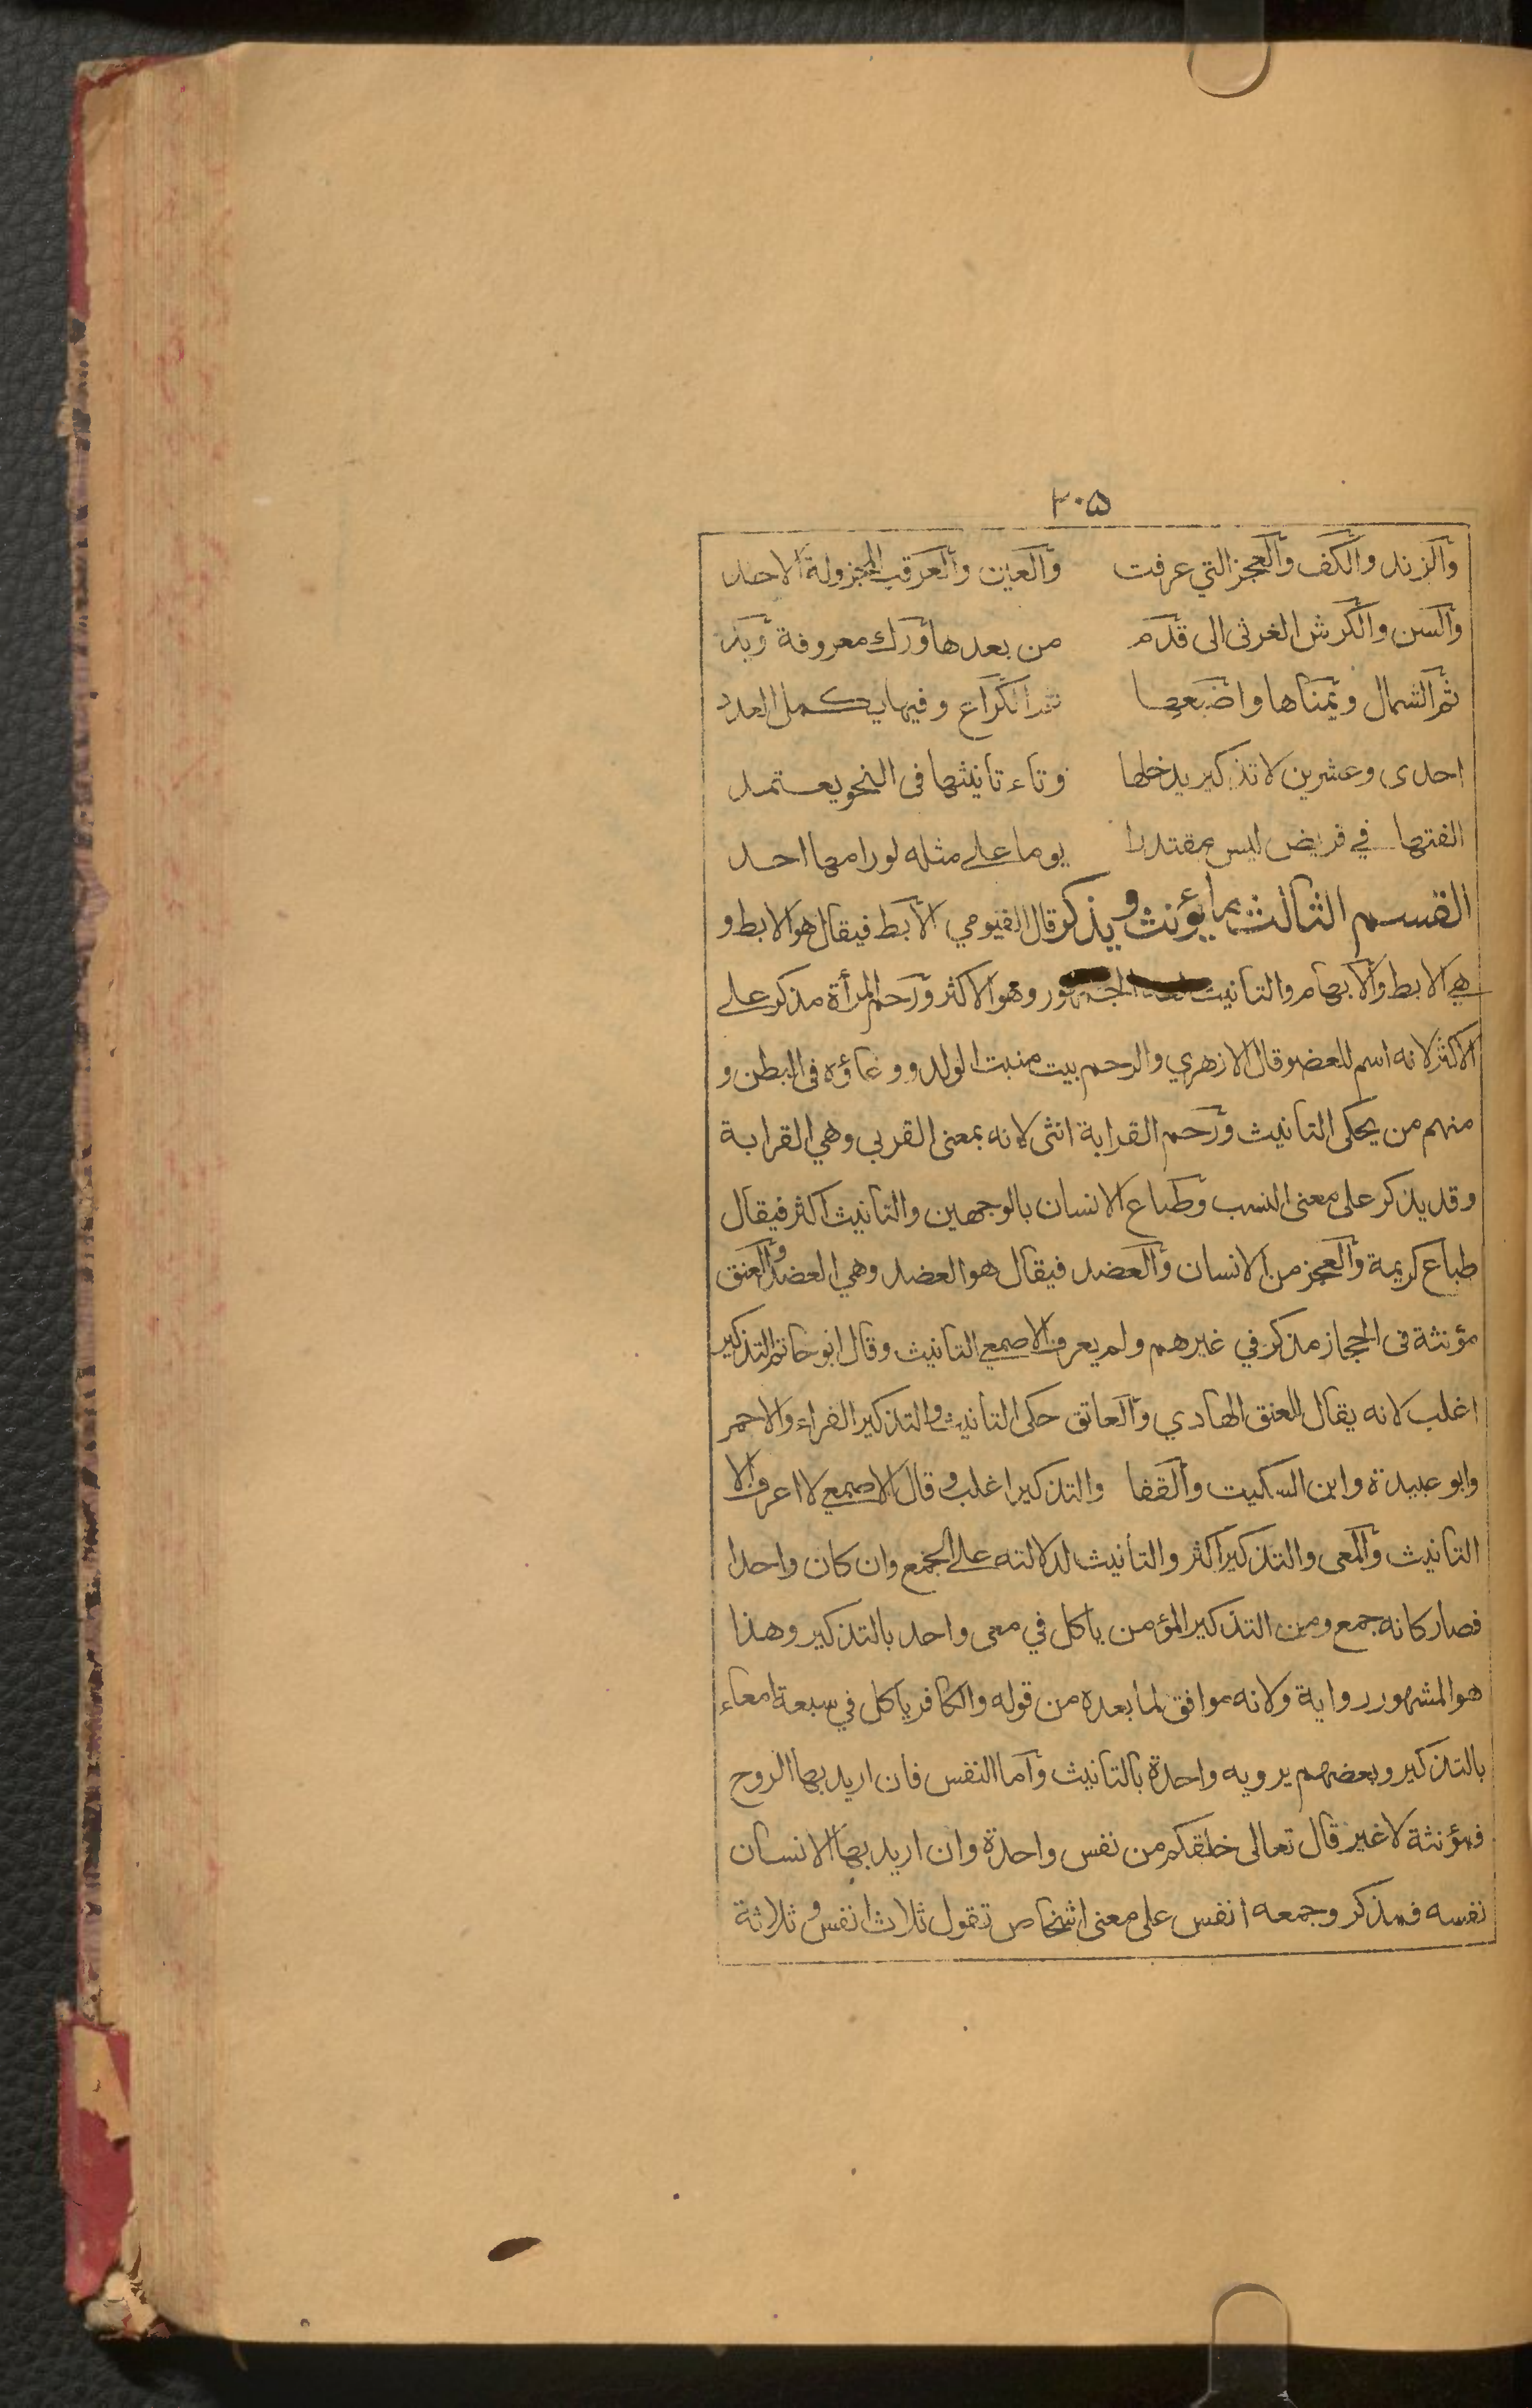 ٢٠٥
والزند والكف والعجز التي عرفت والعين والعرقب المجزولة الاحد
والسن والكرش الغرثى الى قدم من بعدها ورك معروفة ويد
ثم الشمال ويمناها واضبعها ثم الكراع وفيها يكمل العدد
احدى وعشرين لا تذكير يدخلها وتاء تانيثها فى النحو يعتمد
الفتها في قريض ليس بمقتدرا يوما على مثله لورامها احد
القسم الثالث ما يؤنث ويذكر قال الفيومي الابط فيقال هو الابط و
هي الابط والابهام والتانيث لغة الجمهور وهو الاكثر ورحم المرأة مذكر على
الاكثر لانه اسم للعضو قال الازهري والرحم بيت منبت الولد ووعاؤه فى البطن و
منهم من يحكى التانيث ورحم القرابة انثى لانه بمعنى القربى وهي القرابة
وقد يذكر على معنى النسب وطباع الانسان بالوجهين والتانيث اكثر فيقال
طباع كريمة والعجز من الانسان والعضد فيقال هو العضد وهي العضد والعنق
مؤنثة فى الحجاز مذكر في غيرهم ولم يعرف الاصمعي التانيث وقال ابو حاتم التذكير
اغلب لانه يقال للعنق الهادي والعاتق حكى التانيث والتذكير الفراء والاحمر
وابو عبيدة وابن السكيت والقفا والتذكير اغلب وقال الاصمعي لا اعرف الا
التانيث والمعى والتذكير اكثر والتانيث لدلالته على الجمع وان كان واحدا
فصار كانه جمع ومن التذكير المؤمن ياكل في معى واحد بالتذكير وهذا
هو المشهور رواية ولانه موافق لما بعده من قوله والكافر ياكل في سبعة امعاء
بالتذكير وبعضهم يرويه واحدة بالتانيث واما النفس فان اريد بها الروح
فمؤنثة لا غير قال تعالى خلقكم من نفس واحدة وان اريد بها الانسان
نفسه فمذكر وجمعه انفس على معنى اشخاص تقول ثلاث انفس وثلاثة